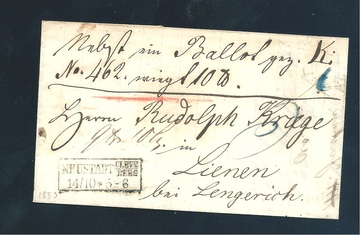 Nebst ein Ballot gez. K:
No. 462. wiegt 10 ℔.
Herrn Rudolph Kraege
in
Lienen
bei Lengerich.
NEUSTADT
14/10 * 5-6
1853